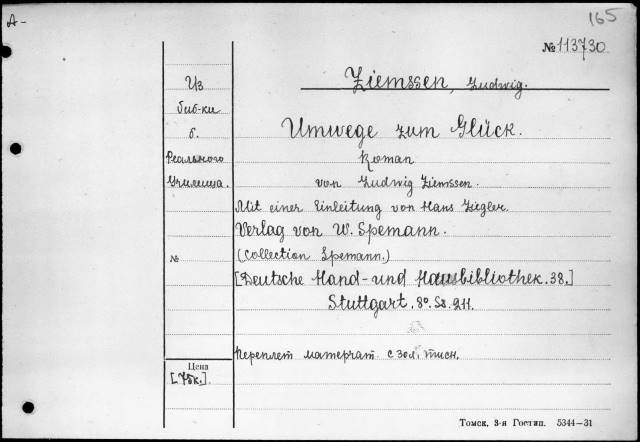 A-
165
№ 113730
Ziemssen, Ludwig.
Из
биб-ки
б.
Реального
Училища.
Umwege zum Glück.
Roman
von Ludwig Ziemssen.
Mit einer Einleitung von Hans Ziegler.
Verlag von W. Spemann.
№
(Collection Spemann.)
[Deutsche Hand- und Hausbibliothek. 38.]
Stuttgart. 8º. Ss. 211.
Переплет матерчат. с зол. тисн.
Цена
[75к.]
Томск, 3-я Гостип. 5344—31